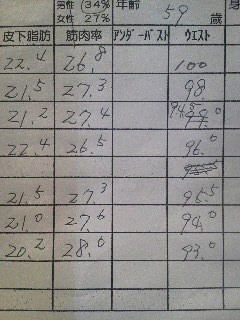 男性 (34%
女性 27%
年齢 59 歳
皮下脂肪 筋肉率 アンダーバスト ウエスト
22.4 26.8 100
21.5 27.3 98
94.5
21.2 27.4
22.4 26.5 96.0
21.5 27.3 95.5
21.0 27.6 94.0
20.2 28.0 93.0